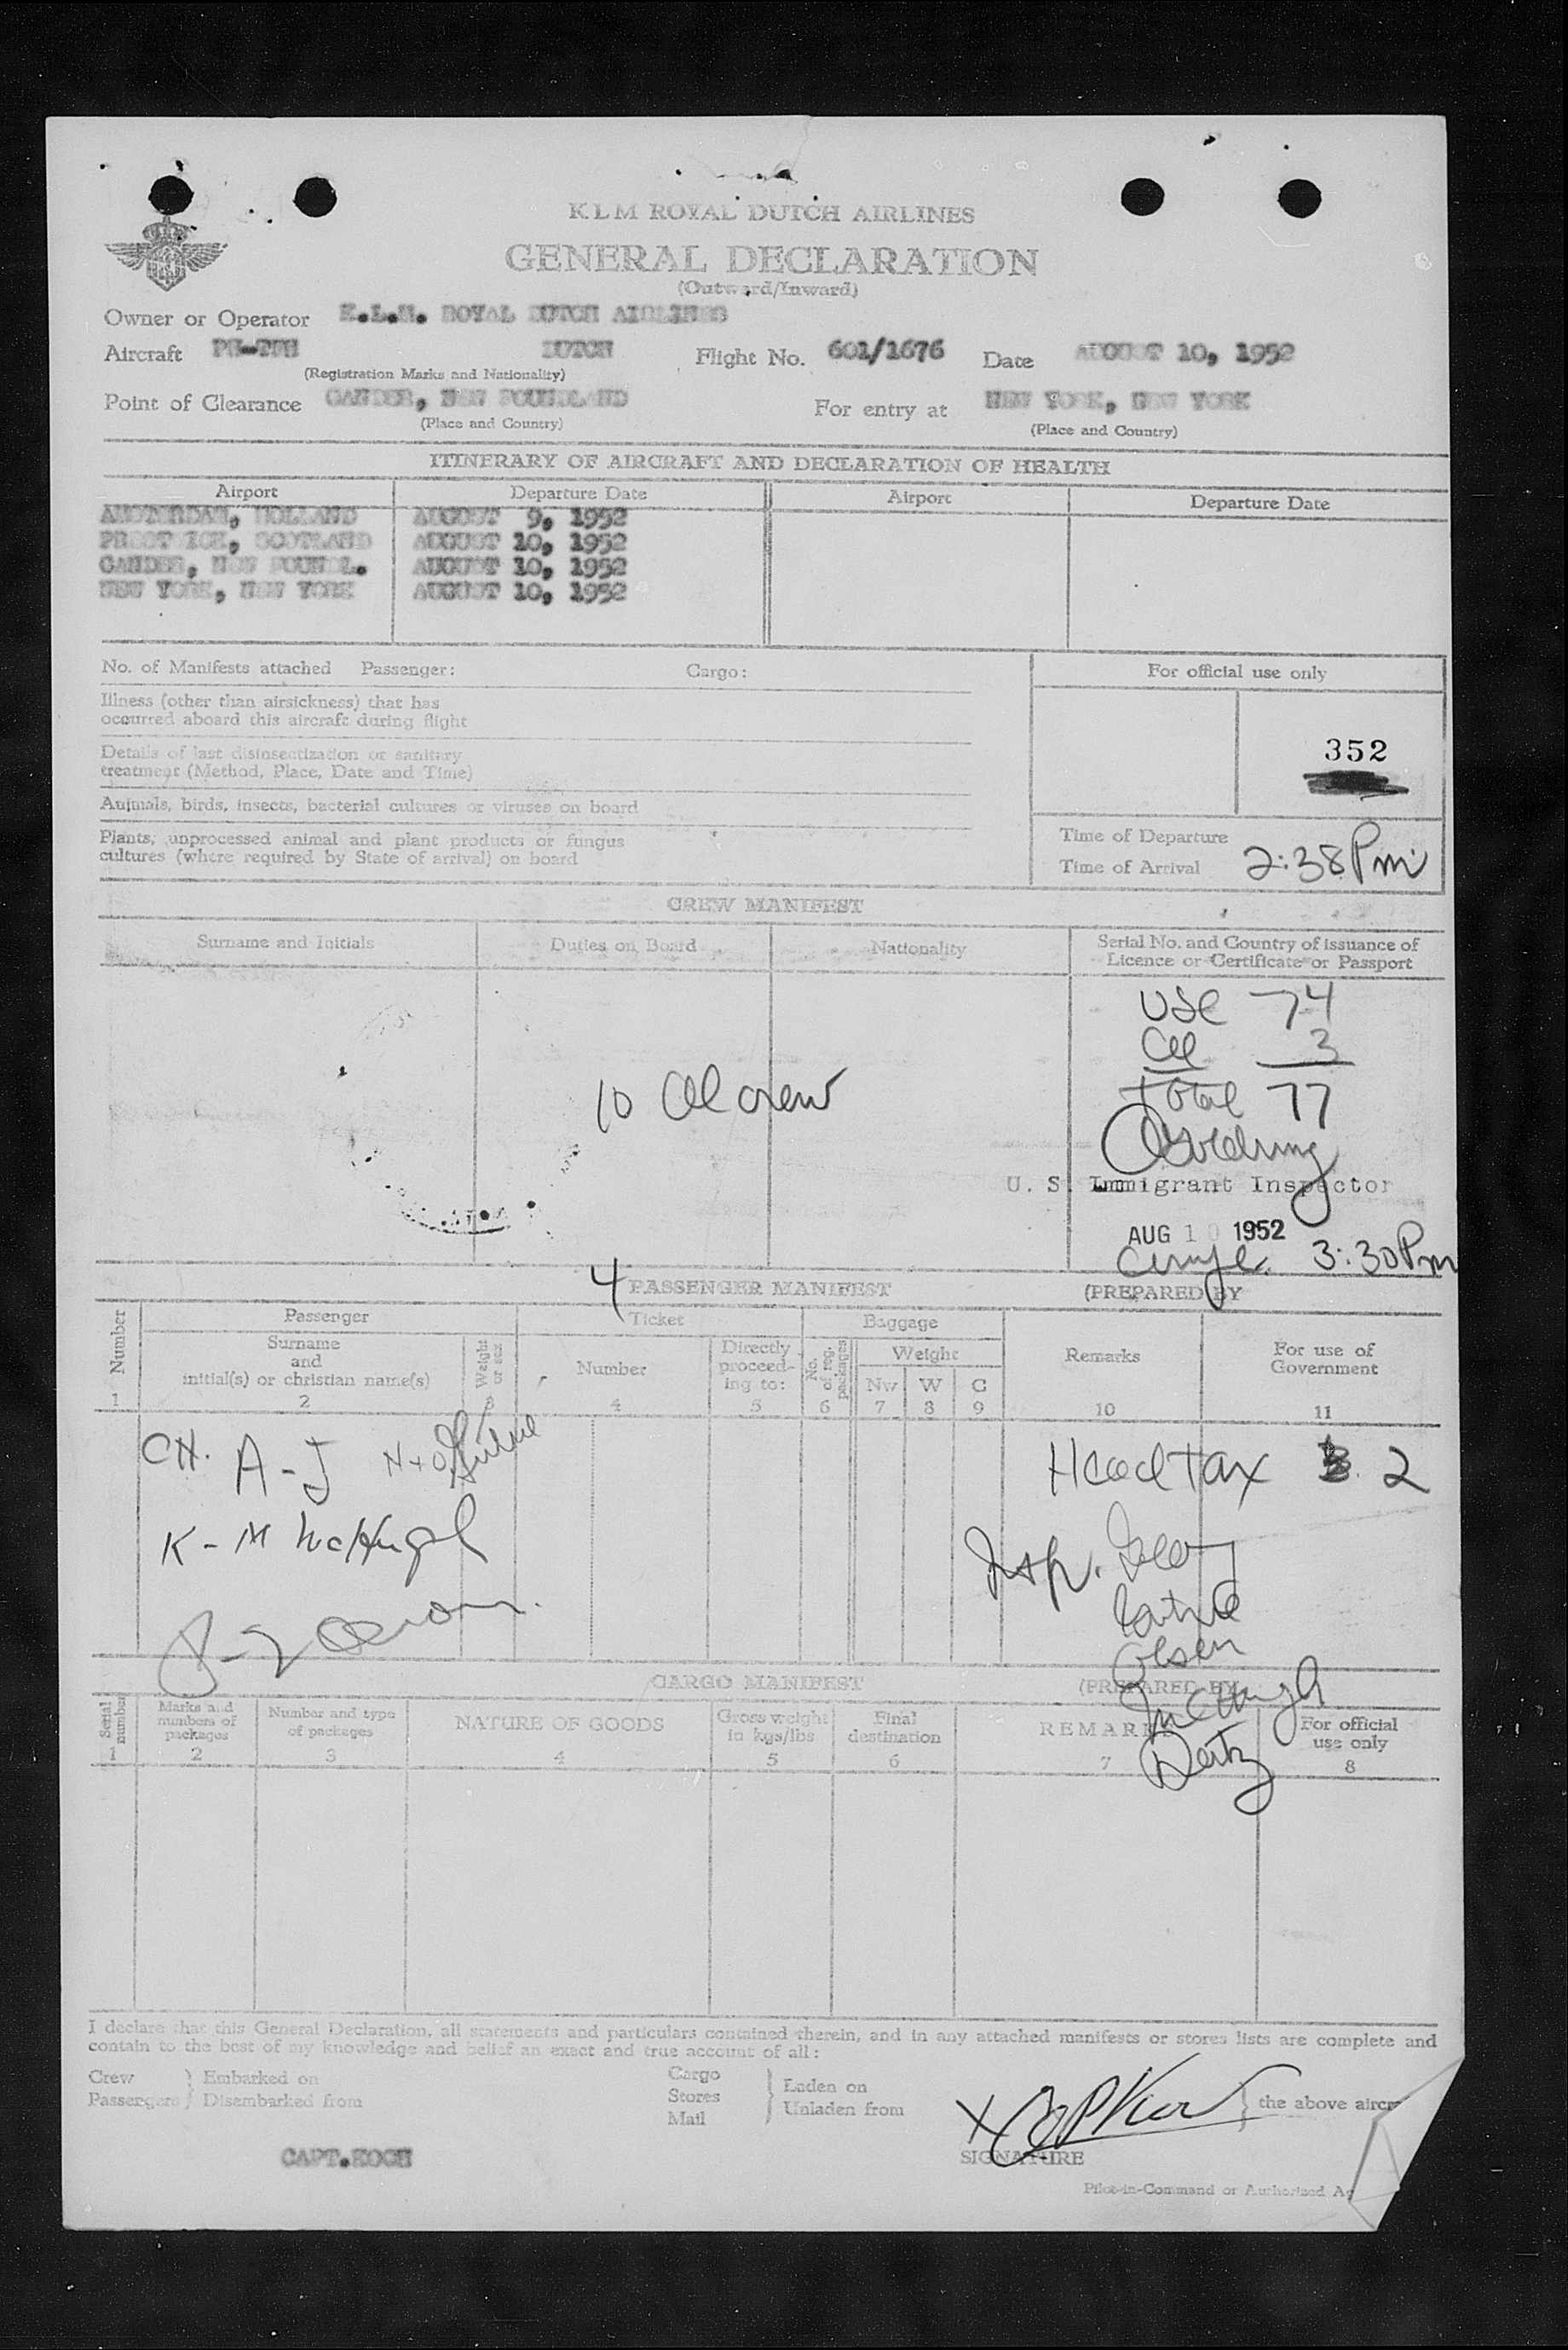 KLM ROYAL DUTCH AIRLINES
GENERAL DECLARATION
(Outward/Inward)
Owner or Operator K.L.M. ROYAL DUTCH AIRLINES
Aircraft DUTCH Flight No. 601/1676 Date AUGUST 10, 1952
(Registration Marks and Nationality)
Point of Clearance GANDER, NEW FOUNDLAND For entry at NEW YORK, NEW YORK
(Place and Country) (Place and Country)
ITINERARY OF AIRCRAFT AND DECLARATION OF HEALTH
Airport Departure Date Airport Departure Date
AMSTERDAM, HOLLAND AUGUST 9, 1952
PRESTWICK, SCOTLAND AUGUST 10, 1952
GANDER, NEW FOUNDL. AUGUST 10, 1952
NEW YORK, NEW YORK AUGUST 10, 1952
No. of Manifests attached Passenger: Cargo: For official use only
Illness (other than airsickness) that has
occurred aboard this aircraft during flight
352
Details of last disinsectization or sanitary
treatment (Method, Place, Date and Time)
Animals, birds, insects, bacterial cultures or viruses on board
Plants, unprocessed animal and plant products or fungus
cultures (where required by State of arrival) on board
Time of Departure
Time of Arrival 2:38 Pm
CREW MANIFEST
Surname and Initials Duties on Board Nationality Serial No. and Country of issuance of
Licence or Certificate or Passport
USC 74
3
Total 77
10 crew
U. S. Immigrant Inspector
AUG 10 1952
3:30 Pm
4 PASSENGER MANIFEST (PREPARED BY
Number Passenger Ticket Baggage Remarks For use of
Government
Surname
and
initial(s) or christian name(s)
Weight or sex Number Directly
proceed-
ing to:
No. of reg. packages Weight
Nw W C
1 2 3 4 5 6 7 8 9 10 11
CH. A-J Head tax 2
K - M McHugh Insp.
Olsen
McHugh
CARGO MANIFEST (PREPARED BY
Serial number Marks and
numbers of
packages
Number and type
of packages
NATURE OF GOODS Gross weight
in kgs/lbs
Final
destination
REMARKS For official
use only
1 2 3 4 5 6 7 8
I declare that this General Declaration, all statements and particulars contained therein, and in any attached manifests or stores lists are complete and
contain to the best of my knowledge and belief an exact and true account of all:
Crew } Embarked on Cargo } Laden on } the above aircr
Passengers } Disembarked from Stores Unladen from
Mail
CAPT.KOCH SIGNATURE
Pilot-in-Command or Authorized Ag